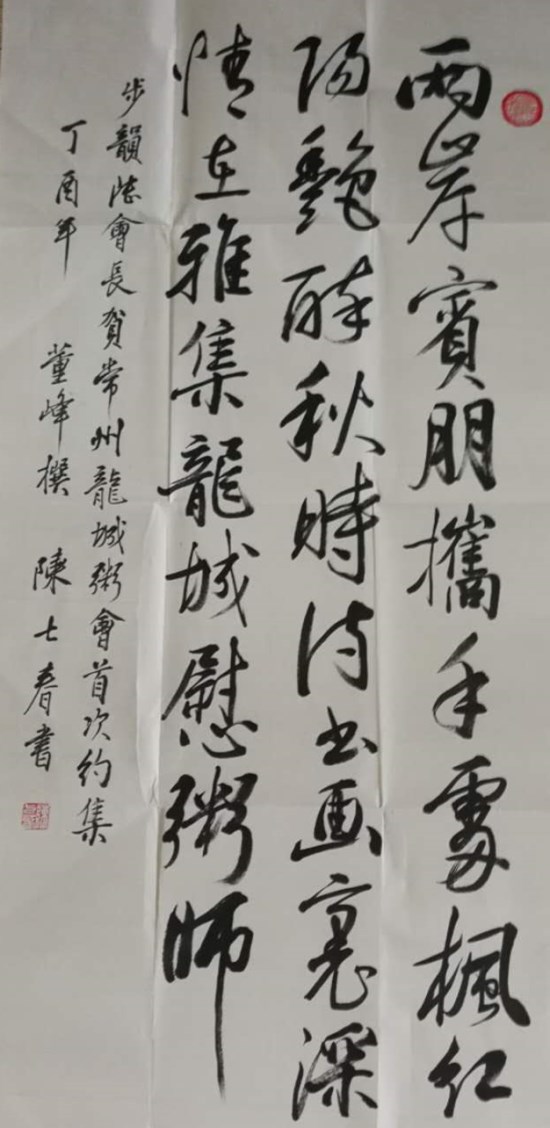 兩岸賓朋攜手處楓紅
陽艷醉秋時詩書画裏深
情在雅集龍城慰粥師
步韻會長賀常州龍城粥會首次約集
丁酉年 董峰撰 陳士春書